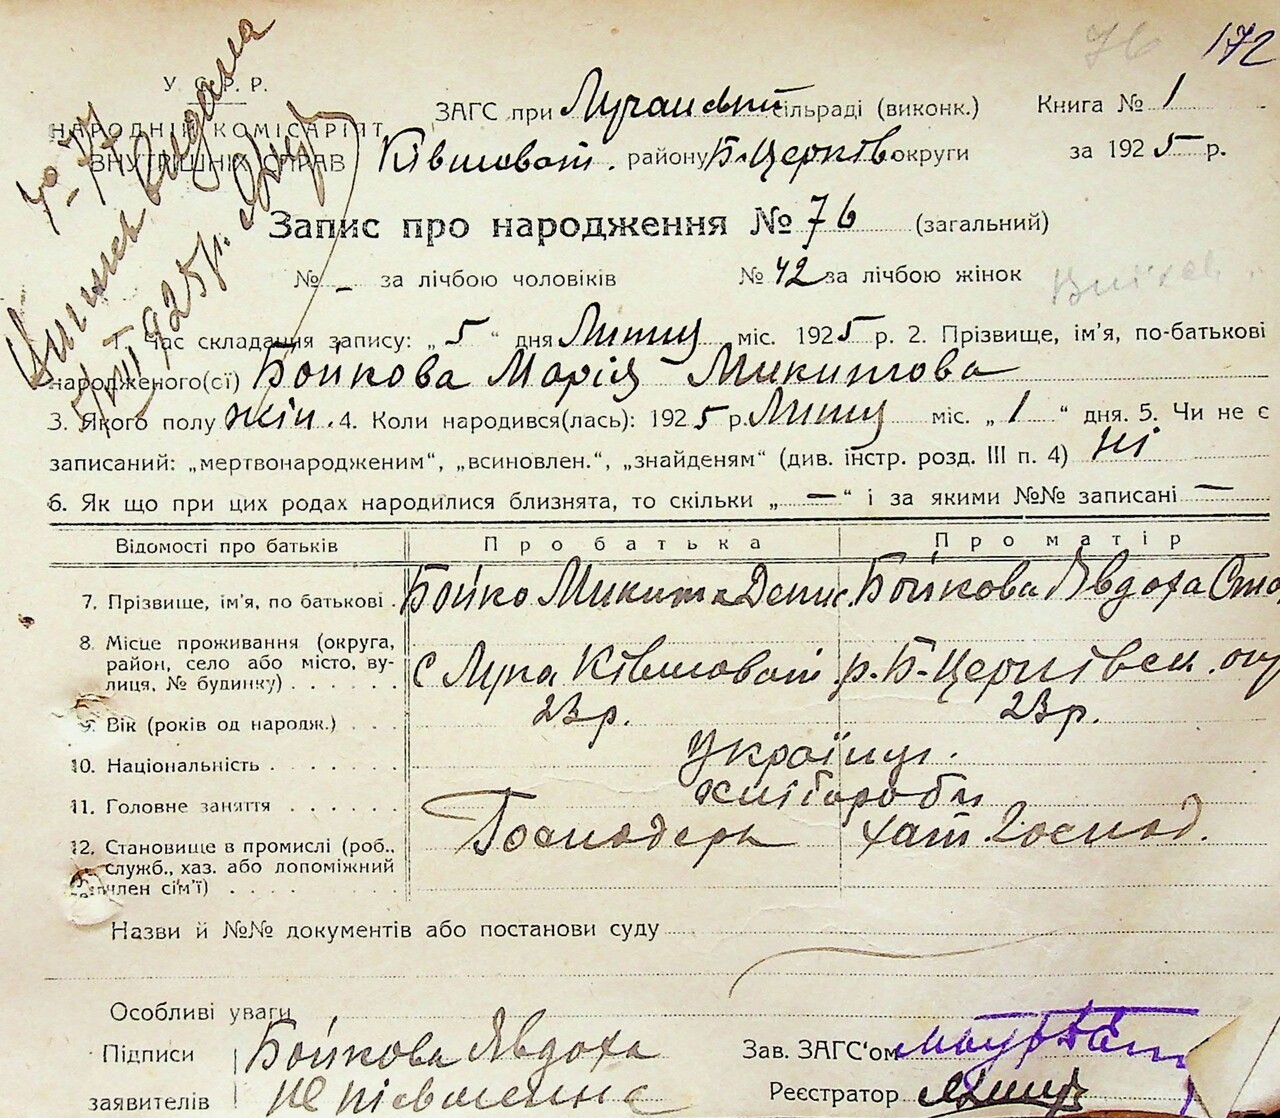 76 172
У. С. Р. Р.
НАРОДНІЙ КОМІСАРІЯТ
ВНУТРІШНІХ СПРАВ
ЗАГС при Лучанській сільраді (виконк.) Книга № 1
Ківшоват. району Б-Церків. округи за 1925 р.
Запис про народження № 76 (загальний)
№ - за лічбою чоловіків № 42 за лічбою жінок
1. Час складання запису: „5“ дня Лютц міс. 1925 р. 2. Прізвище, ім'я, по-батькові
народженого(сї) Бойкова Марія Микитова
3. Якого полу жін. 4. Коли народився(лась): 1925 р. Лютц міс. „1“ дня. 5. Чи не є
записаний: „мертвонародженим“, „всиновлен.“, „знайденям“ (див. інстр. розд. III п. 4) ні
6. Як що при цих родах народилися близнята, то скільки „—“ і за якими №№ записані —
Відомості про батьків Про батька Про матір
7. Прізвище, ім'я, по батькові Бойко Микита Денис. Бойкова Явдоха
8. Місце проживання (округа,
район, село або місто, ву-
лиця, № будинку) с Лука Ківшоват р. Б-Церківськ. окр
9. Вік (років од народж.) 23 р. 23 р.
10. Національність Українці.
11. Головне заняття хлібороби
12. Становище в промислі (роб.,
служб., хаз. або допоміжний
член сім'ї) Господарь хат. господ.
Назви й №№ документів або постанови суду
Особливі уваги
Підписи Бойкова Явдоха
заявителів не písьменна
Зав. ЗАГС'ом
Реєстратор